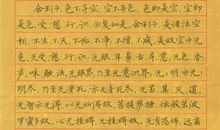 舍利子,色不异空,空不异色,色即是空,空即
是色,受,想,行,识,亦复如是,舍利子,是诸法空
相,不生,不灭,不垢,不净,不增,不减,是故空中无
色,无受,想,行,识,无眼,耳,鼻,舌,身,意,无色,声,香,
味,触,法,无眼界,乃至无意识界,无无明,亦无无
明尽,乃至无老死,亦无老死尽,无苦,集,灭,道,
无智亦无得,以无所得故,菩提萨埵,依般若波
罗蜜多故,心无挂碍,无挂碍故,无有恐怖,远离